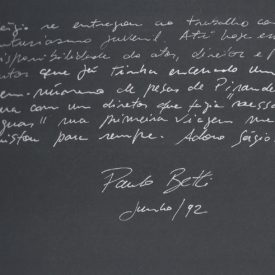 Sérgio se entregou ao trabalho com
entusiasmo juvenil. Até hoje
disponibilidade do ator, diretor e
que já tinha encenado um
número de peças de Pirande
com um diretor que fazia
águas" sua primeira viagem me
para sempre. Adoro Sérgio
Paulo Betti
Junho/92